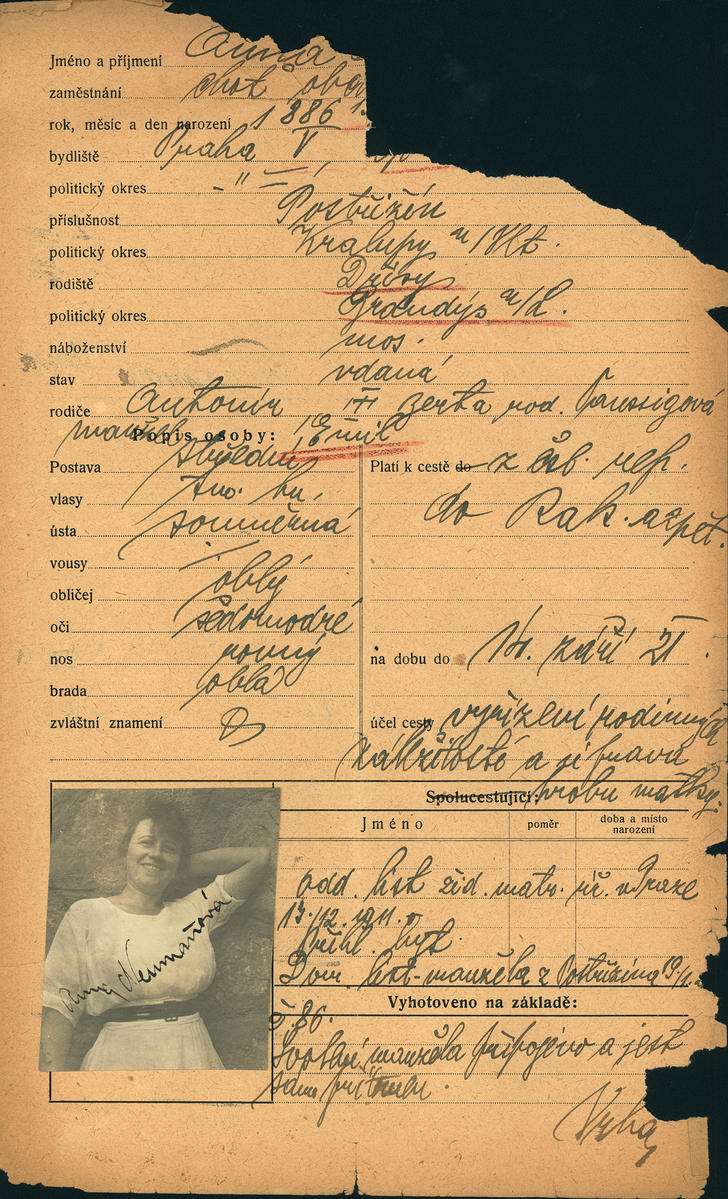 Jméno a příjmení Anna
zaměstnání choť obch
rok, měsíc a den narození 1886 1.
bydliště Praha V
politický okres -"-
příslušnost Postřižín
politický okres Kralupy n/Vlt.
rodiště Dřísy
politický okres Brandýs n/L.
náboženství mos.
stav vdaná
rodiče Antonín + Berta rod. Taussigová
manžel Emil
Popis osoby:
Postava střední Platí k cestě do z čsb. rep.
vlasy tm. hn.
do Rak. a zpět.
ústa souměrná
vousy
obličej oblý
oči šedomodré
nos rovný na dobu do 14. září 21.
brada oblá
zvláštní znamení účel cesty vyřízení rodinných
záležitostí a úprava
Spolucestující: hrobu matky.
Jméno poměr doba a místo narození
odd. list žid. matr. úř. v Praze
13.12.1911.
Přihl. byt.
Dom. list manžela z Postřižína 19/1
č 86.
Vyhotoveno na základě:
Svolení manžela připojeno a jest
sám přítomen.
Anna Neumannová